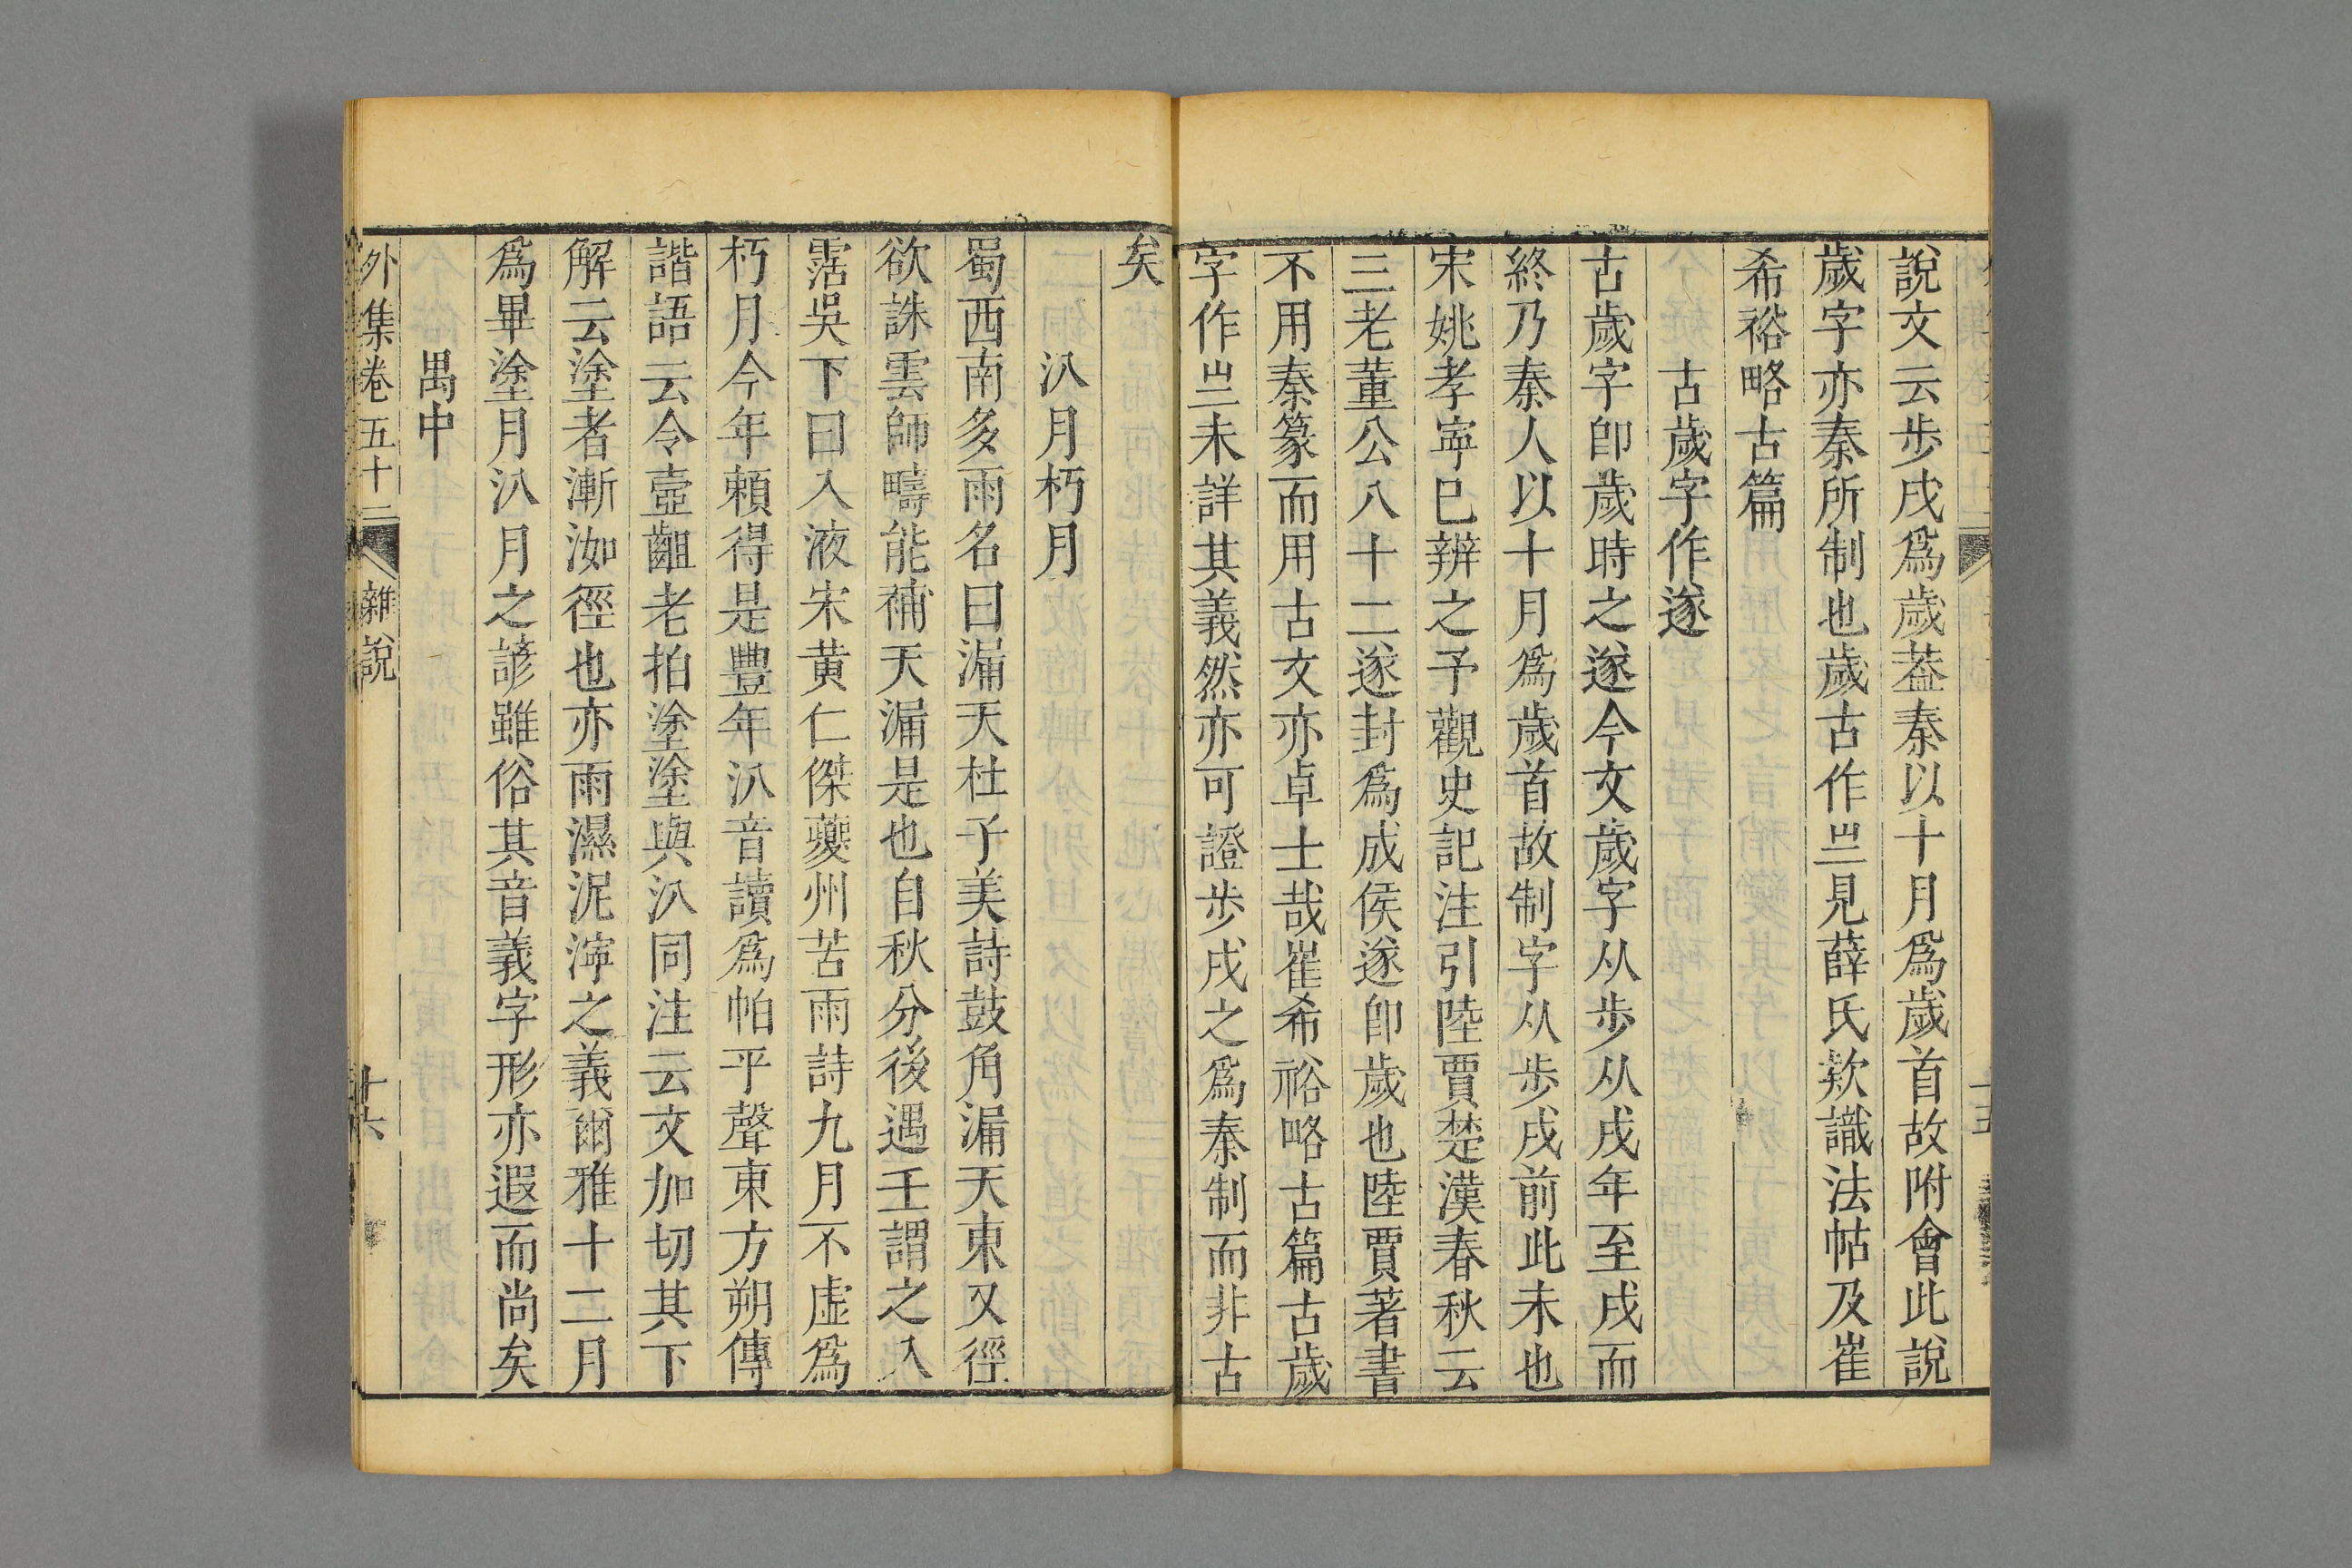 說文云歩戌爲歲葢秦以十月爲歲首故附會此說
歲字亦秦所制也歲古作亗見薛氏欵識法帖及崔
希裕略古篇
古歲字作遂
古歲字卽歲時之遂今文歲字从歩从戌年至戌而
終乃秦人以十月爲歲首故制字从歩戌前此未也
宋姚孝寜巳辨之予觀史記注引陸賈楚漢春秋云
三老董公八十二遂封爲成侯遂卽歲也陸賈著書
不用秦篆而用古文亦卓士哉崔希裕略古篇古歲
字作亗未詳其義然亦可證歩戌之爲秦制而非古
矣
汃月朽月
蜀西南多雨名曰漏天杜子美詩鼓角漏天東又徑
欲誅雲師疇能補天漏是也自秋分後遇壬謂之入
霑吳下曰入液宋黄仁傑夔州苦雨詩九月不虛爲
朽月今年賴得是豐年汃音讀爲帕平聲東方朔傳
諧語云令壺齟老拍塗塗與汃同注云文加切其下
解云塗者漸洳徑也亦雨濕泥濘之義爾雅十二月
爲畢塗月汃月之諺雖俗其音義字形亦遐而尚矣
禺中
外集卷五十二 雜説 十六